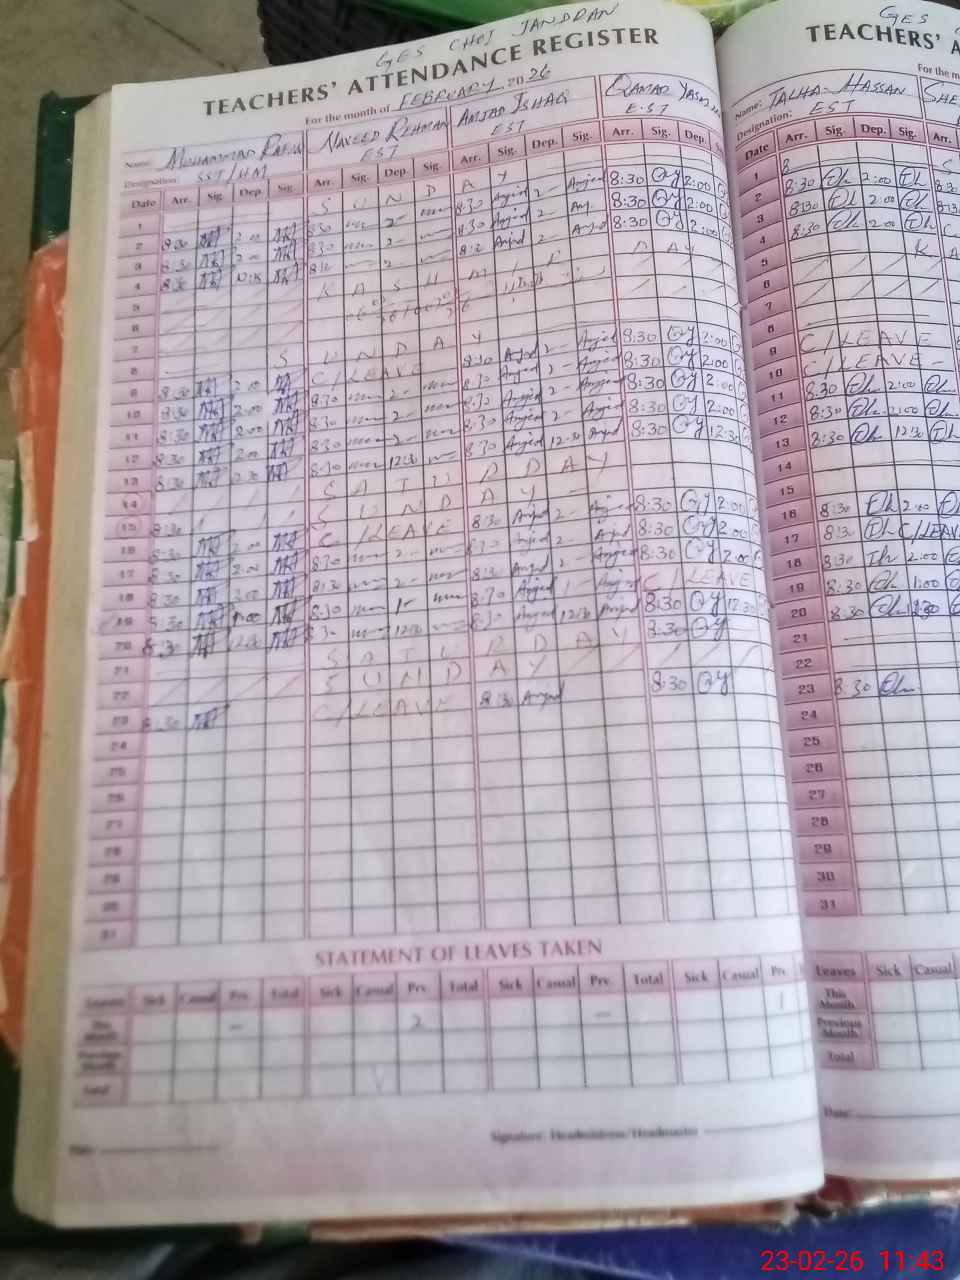 GES CHOI JANDRAN
TEACHERS' ATTENDANCE REGISTER
For the month of FEBRUARY 2026
Name: MOHAMMAD NAVEED REHMAN AMJAD ISHAQ QAMAR
Designation: SST/HM EST EST EST
Date Arr. Sig. Dep. Sig. Arr. Sig. Dep. Sig. Arr. Sig. Dep. Sig. Arr. Sig. Dep.
1 SUNDAY
2 8:30 2:00 8:30 2- 8:30 Amjad 2- Amjad 8:30 QY 2:00
3 8:30 2:00 8:30 2- 8:30 Amjad 2- 8:30 QY 2:00
4 8:30 2- Amjad 2- Amjad 8:30 QY 2:00
5 KASHMIR DAY
6
7
8 SUNDAY
9 8:30 2:00 C/LEAVE 8:30 Amjad 2- Amjad 8:30 QY 2:00
10 8:30 2:00 8:30 2- 8:30 Amjad 2- Amjad 8:30 QY 2:00
11 8:30 2:00 8:30 2- 8:30 Amjad 2- Amjad 8:30 QY 2:00
12 8:30 2:00 8:30 2- 8:30 Amjad 2- Amjad 8:30 QY 2:00
13 8:30 8:30 12:30 8:30 Amjad 12:30 Amjad 8:30 QY 12:30
14 SATURDAY
15 SUNDAY
16 8:30 2:00 C/LEAVE 8:30 Amjad 2- Amjad 8:30 QY 2:00
17 8:30 2:00 8:30 2- 8:30 Amjad 2- Amjad 8:30 QY 2:00
18 8:30 2:00 8:30 2- 8:30 Amjad 2- Amjad 8:30 QY 2:00
19 8:30 1:00 8:30 1- 8:30 Amjad 1- Amjad C/LEAVE
20 8:30 12:30 8:30 12:30 8:30 Amjad 12:30 Amjad 8:30 QY 12:30
21 SATURDAY 8:30 QY
22 SUNDAY
23 8:30 C/LEAVE 8:30 Amjad 8:30 QY
24
25
26
27
28
29
30
31
STATEMENT OF LEAVES TAKEN
Leaves Sick Casual Prv. Total Sick Casual Prv. Total Sick Casual Prv. Total Sick Casual Prv.
This Month - 2 - 1
Previous Month
Total
Date: Signature: Headmistress/Headmaster
GES
TEACHERS' A
For the m
Name: TALHA HASSAN SHE
Designation: EST
Date Arr. Sig. Dep. Sig. Arr.
1
2 8:30 2:00
3 8:30 2:00
4 8:30 2:00
5 KA
6
7
8
9 C/LEAVE
10 C/LEAVE
11 8:30 2:00
12 8:30 2:00
13 8:30 12:30
14
15
16 8:30 2:00
17 8:30 C/LEAVE
18 8:30 2:00
19 8:30 1:00
20 8:30
21
22
23 8:30
24
25
26
27
28
29
30
31
Leaves Sick Casual
This Month
Previous Month
Total
Date:
23-02-26 11:43